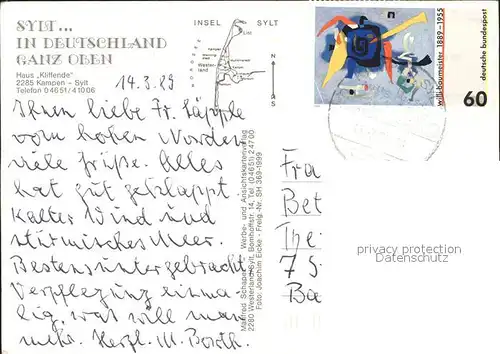 SYLT...
IN DEUTSCHLAND
GANZ OBEN
Haus „Kliffende"
2285 Kampen – Sylt
Telefon 04651/41006
INSEL SYLT
List
Kampen
Westerland
NORDSEE
N
S
14.3.89
Ihnen liebe Fr. Läpple
vom hohen Norden
viele Grüße. Alles
hat gut geklappt
Kalter Wind und
stürmisches Meer.
Bestens untergebracht
Verpflegung einma-
lig, was will man
mehr. Herzl. M.
Manfred Schaper · Werbe- und Ansichtskartenverlag
2280 Westerland/Sylt, Bomhoffstr. 14, Tel. (04651) 24700
Foto: Joachim Eicke · Freig.-Nr. SH 369-1999
willi baumeister 1889-1955
deutsche bundespost
60
Fra
Bet
The
75
Ba
privacy protection
Datenschutz